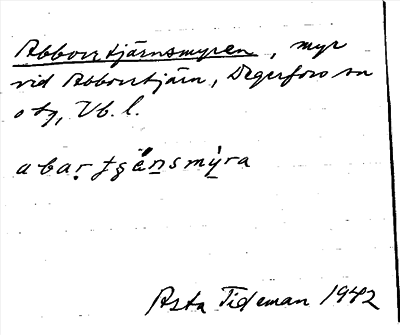 Abborrtjärnsmyren, myr
vid Abborrtjärn, Degerfors sn
o tg, Vb. l.
abaṛ tşä́ṇsmỳra
Asta Tideman 1942